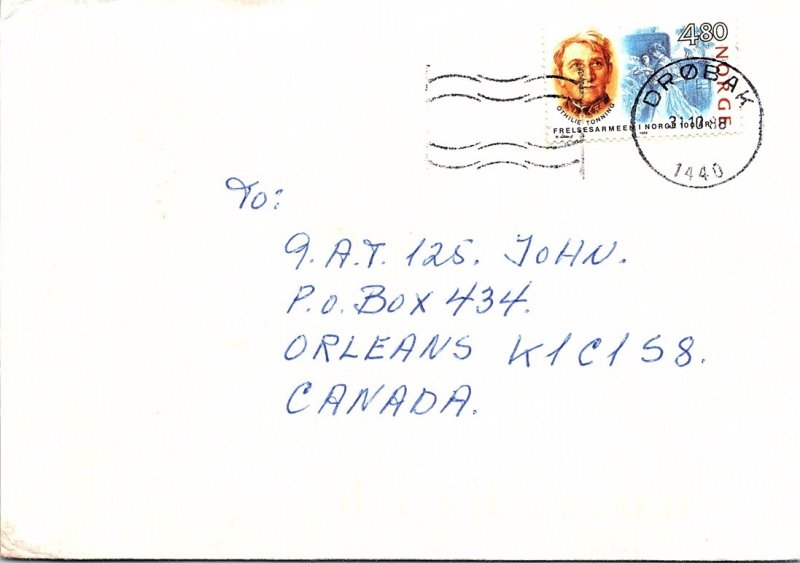 4.80
NORGE
OTHILIE TONNING
FRELSESARMEEN I NORGE 100 ÅR
DRØBAK
31.10.88
1440
To:
9.A.T. 125. JOHN.
P.O. BOX 434.
ORLEANS K1C1S8.
CANADA.